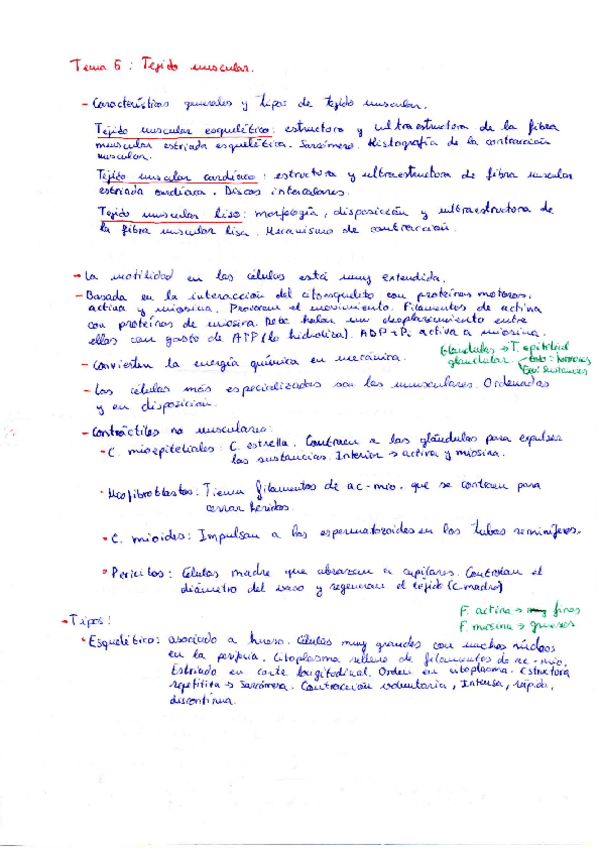 Tema 6: Tejido muscular.
- Características generales y tipos de tejido muscular.
Tejido muscular esquelético: estructura y ultraestructura de la fibra
muscular estriada esquelética. Sarcómero. Histografía de la contracción
muscular.
Tejido muscular cardíaco: estructura y ultraestructura de fibra muscular
estriada cardíaca. Discos intercalares.
Tejido muscular liso: morfología, disposición y ultraestructura de
la fibra muscular lisa. Mecanismo de contracción.
- La motilidad en las células está muy extendida.
- Basada en la interacción del citoesqueleto con proteínas motoras.
activa y miosina. Provocan el movimiento. Filamentos de activa
con proteínas de miosina. Debe haber un desplazamiento entre
ellas con gasto de ATP (lo hidroliza). ADP + Pi activa a miosina.
Glándulas → T. epitelial
glandular
Endo: hormonas
Exo: sustancias
- Convierten la energía química en mecánica.
- Las células más especializadas son las musculares. Ordenadas
y en disposición.
- Contráctiles no musculares:
• C. mioepiteliales: C. estrella. Contraen a las glándulas para expulsar
las sustancias. Interior → activa y miosina.
• Miofibroblastos: Tienen filamentos de ac-mio. que se contraen para
cerrar heridas.
• C. mioides: Impulsan a los espermatozoides en los tubos seminíferos.
• Pericitos: Células madre que abrazan a capilares. Controlan el
diámetro del vaso y regeneran el tejido (C. madre)
F. actina → muy finos
F. miosina → gruesos
- Tipos:
• Esquelético: asociado a hueso. Células muy grandes con muchos núcleos
en la periferia. Citoplasma relleno de filamentos de ac-mio.
Estriado en corte longitudinal. Orden en citoplasma. Estructura
repetitiva → Sarcómero. Contracción voluntaria, Intensa, rápida,
discontinua.